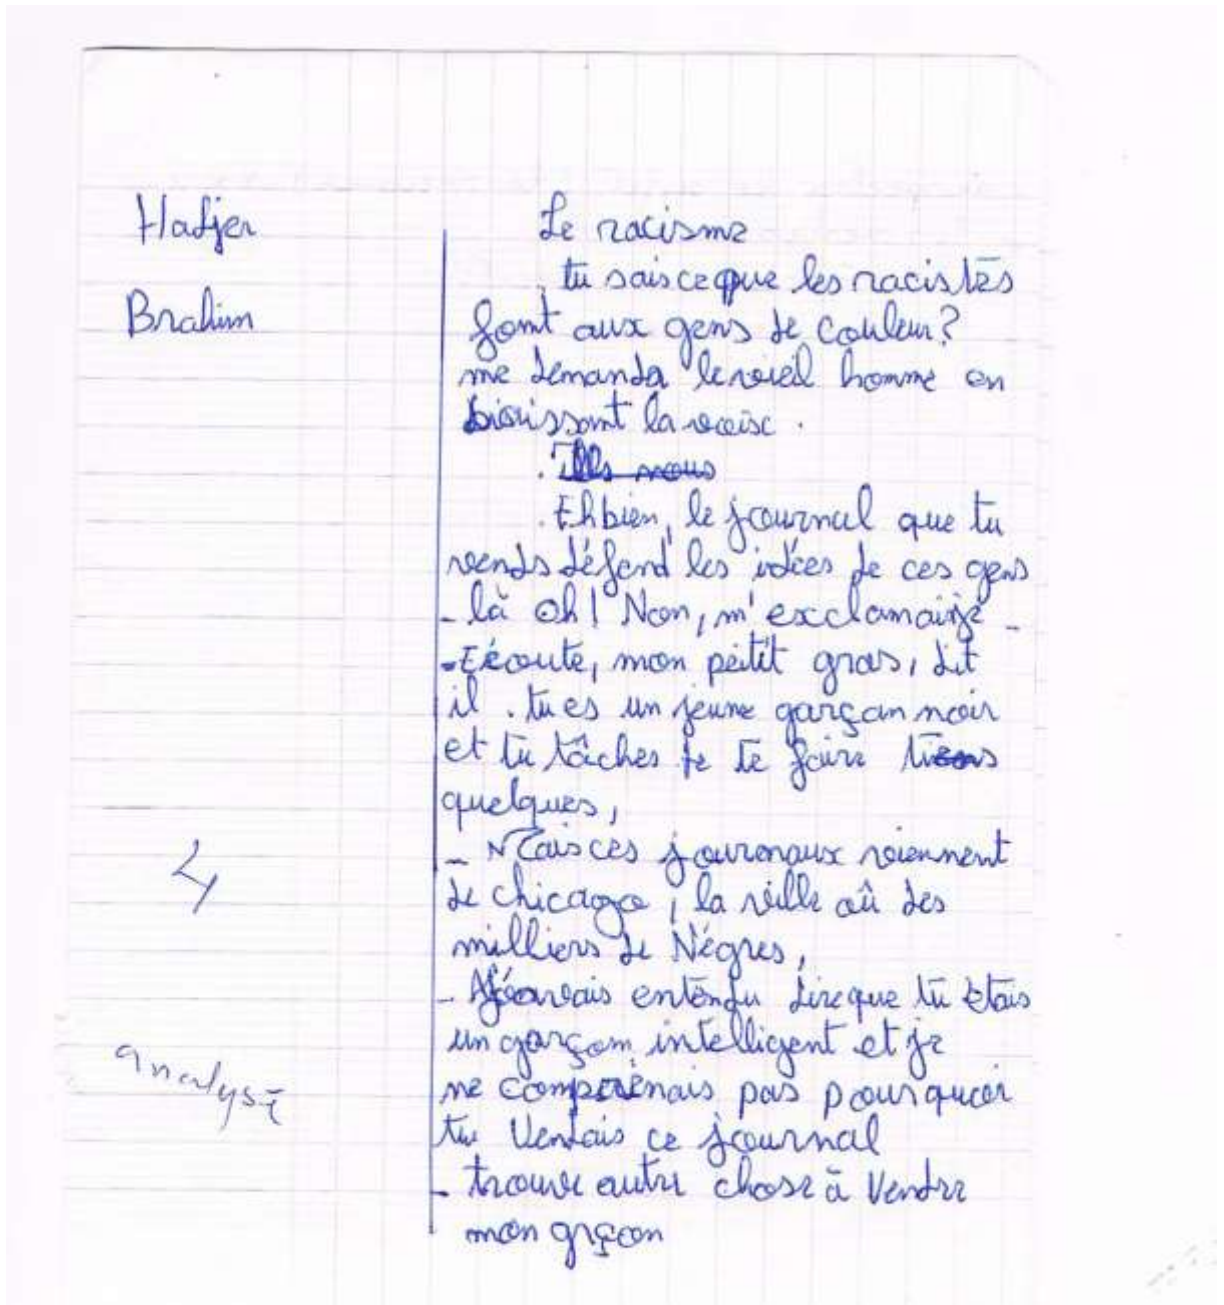 Hadjer
Brahim
4
analyse
Le racisme
tu sais ce que les racistes
font aux gens de couleur?
me demanda le vieil homme en
la voix.
. Ils nous
. Eh bien, le journal que tu
vends défend les idées de ces gens
- là oh! Non, m'exclamais je -
- Ecoute, mon petit gras, dit
il. tu es un jeune garçan noir
et tu tâches de te faire
quelques,
- Mais ces journaux viennent
de chicago, la ville où des
milliers de Nègres,
- avais entendu dire que tu étais
un garçon intelligent et je
ne comprenais pas pourquoi
tu Vendais ce journal
- trouve autre chose à Vendre
mon grçon